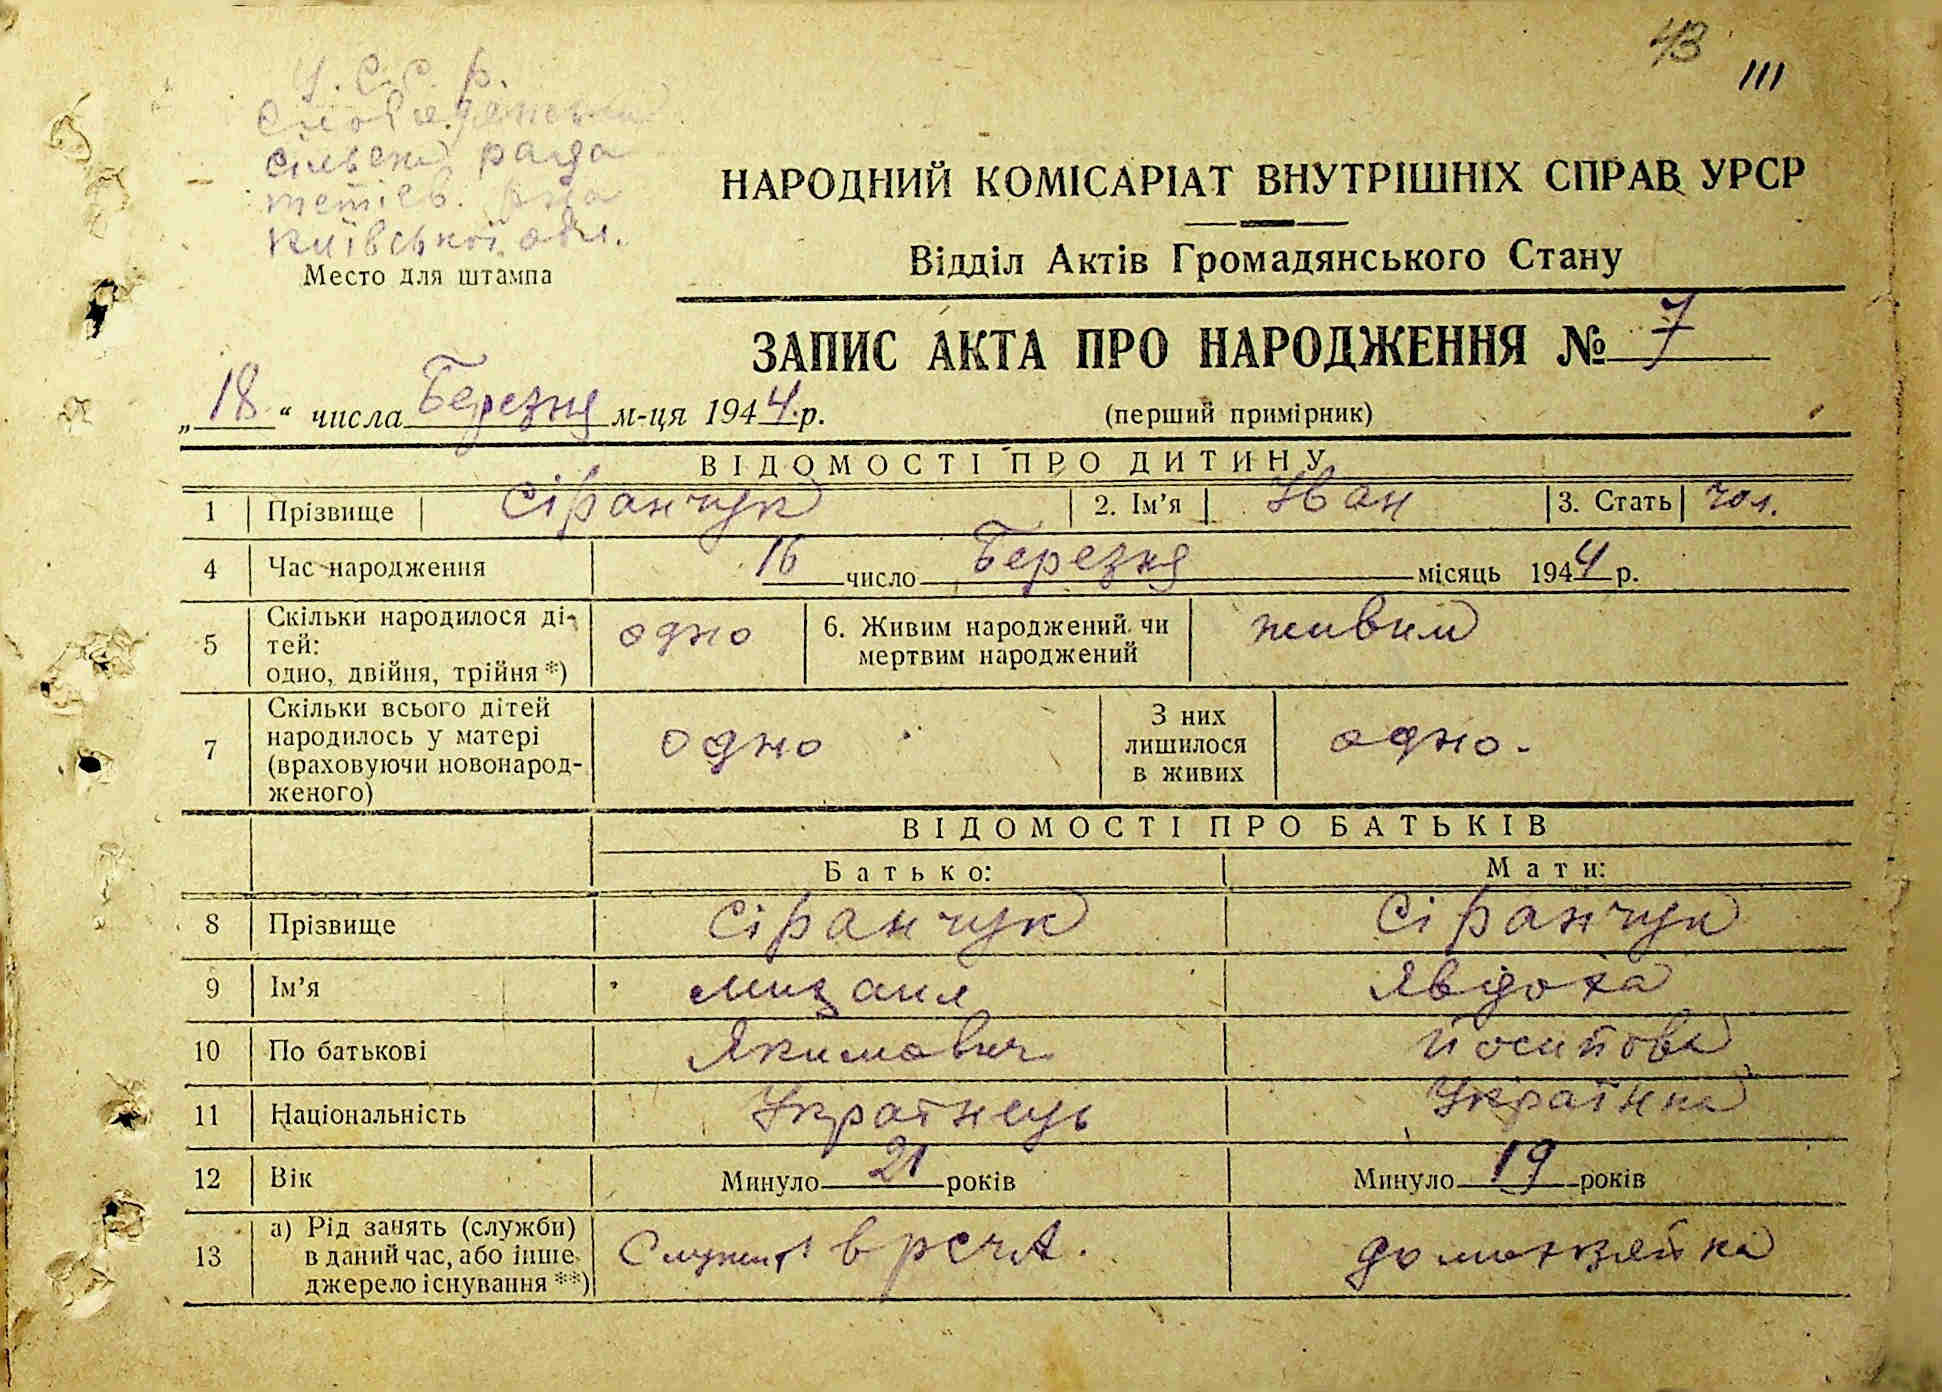 43
III
У.С.С.Р.
сільськ рада
тетіев. р-на
Київської обл.
Место для штампа
НАРОДНИЙ КОМІСАРІАТ ВНУТРІШНІХ СПРАВ УРСР
Відділ Актів Громадянського Стану
ЗАПИС АКТА ПРО НАРОДЖЕННЯ № 7
„18“ числа Березня м-ця 1944 р. (перший примірник)
ВІДОМОСТІ ПРО ДИТИНУ
1 Прізвище Сіранчук 2. Ім’я Іван 3. Стать чол.
4 Час народження 16 число Березня місяць 1944 р.
5 Скільки народилося ді-
тей:
одно, двійня, трійня *) одно 6. Живим народжений чи
мертвим народжений живим
7 Скільки всього дітей
народилось у матері
(враховуючи новонарод-
женого) одно З них
лишилося
в живих одно.
ВІДОМОСТІ ПРО БАТЬКІВ
Батько: Мати:
8 Прізвище Сіранчук Сіранчук
9 Ім’я Явдоха
10 По батькові Якимович Йосипова
11 Національність Українець Українка
12 Вік Минуло 21 років Минуло 19 років
13 а) Рід занять (служби)
в даний час, або інше
джерело існування **) в РСЧА. домохзяйка